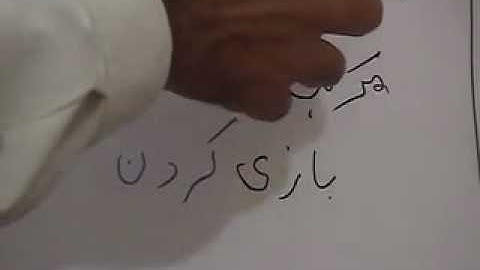 مرکب
بازی کردن